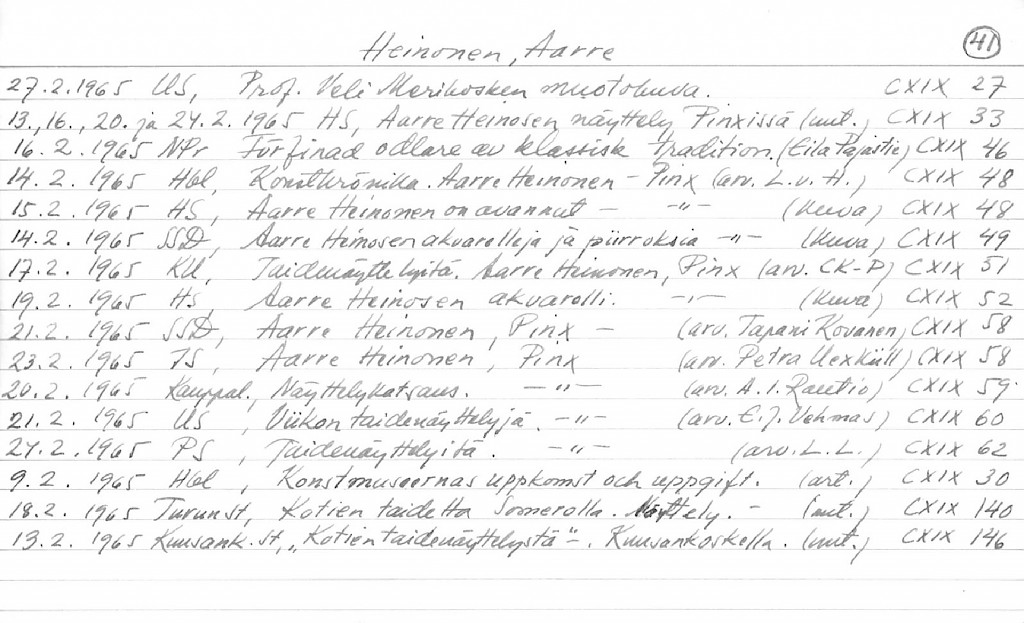 Heinonen, Aarre 41
27.2.1965 US, Prof. Veli Merikosken muotokuva. CXIX 27
13., 16., 20. ja 24.2.1965 HS, Aarre Heinosen näyttely Pinxissä (mt.) CXIX 33
16.2.1965 NPr Förfinad odlare av klassisk tradition. (Eila Pajastie) CXIX 46
14.2.1965 Hbl, Konstkrönika. Aarre Heinonen - Pinx (arv. L.v.H.) CXIX 48
15.2.1965 HS, Aarre Heinonen on avannut - -"- (kuva) CXIX 48
14.2.1965 SSD, Aarre Heinosen akvarelleja ja piirroksia -"- (kuva) CXIX 49
17.2.1965 KU, Taidenäyttelyitä. Aarre Heinonen, Pinx (arv. CK-P) CXIX 51
19.2.1965 HS, Aarre Heinosen akvarelli. -"- (kuva) CXIX 52
21.2.1965 SSD, Aarre Heinonen, Pinx - (arv. Tapani Kovanen) CXIX 58
23.2.1965 TS, Aarre Heinonen, Pinx (arv. Petra Uexküll) CXIX 58
20.2.1965 Kauppal., Näyttelykatsaus. -"- (arv. A.I. Rautio) CXIX 59
21.2.1965 US, Viikon taidenäyttelyjä. -"- (arv. E.J. Vehmas) CXIX 60
24.2.1965 PS, Taidenäyttelyitä. -"- (arv. L.L.) CXIX 62
9.2.1965 Hbl, Konstmuseernas uppkomst och uppgift. (art.) CXIX 30
18.2.1965 Turunst, Kotien taidetta Somerolla. Näyttely. - (mt.) CXIX 140
13.2.1965 Kuusank. st, "Kotien taidenäyttelystä"-. Kuusankoskella. (mt.) CXIX 146